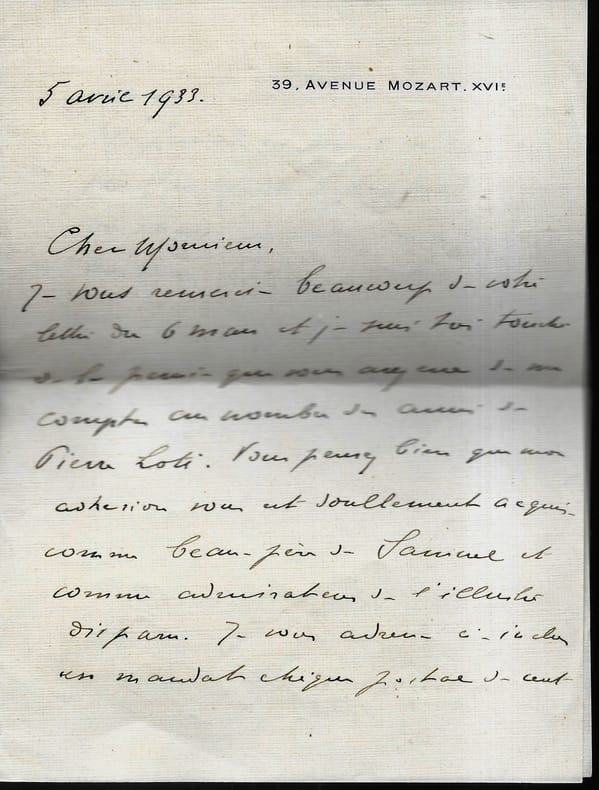 39, AVENUE MOZART. XVIe
5 avril 1933.
Cher Monsieur,
Je vous remercie beaucoup de votre
lettre du 6 mars et je suis très touché
de la pensée que vous avez eue de me
compter au nombre des amis de
Pierre Loti. Vous pensez bien que mon
adhésion vous est doublement acquise
comme beau-père de Samuel et
comme admirateur de l'illustre
disparu. Je vous adresse ci-inclus
un mandat chèque postal de cent